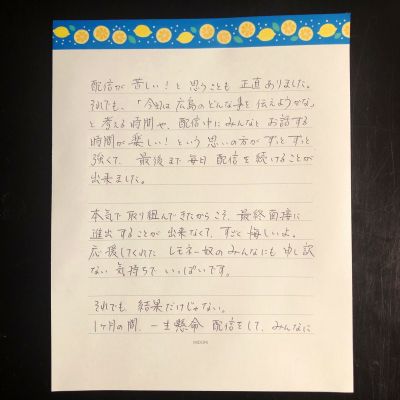 配信が苦しい！と思うことも正直ありました。
それでも、「今日は広島のどんな事を伝えようかな」
と考える時間や、配信中にみんなとお話する
時間が楽しい！という思いの方がずっとずっと
強くて、最後まで毎日配信を続けることが
出来ました。
本気で取り組んできたからこそ、最終面接に
進出することが出来なくて、すごく悔しいよ。
応援してくれたレモネー奴のみんなにも申し訳
ない気持ちでいっぱいです。
それでも、結果だけじゃない。
1ヶ月の間、一生懸命配信をして、みんなに
MIDORI